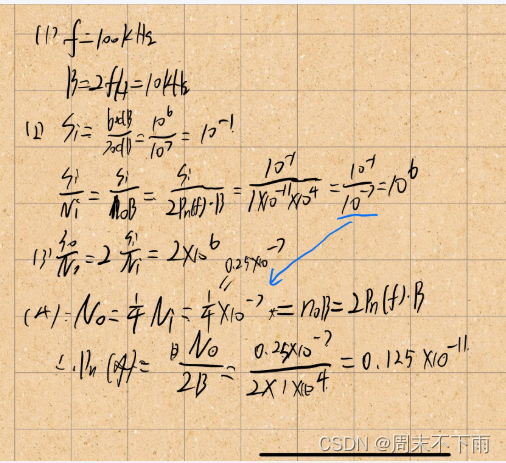 (1) f=100kHz
B=2fH=10kHz
(2) Si=60dB/70dB=10^6/10^7=10^-1
Si/Ni=Si/n0B=Si/2Pn(f)·B=10^-1/1×10^-11×10^4=10^-1/10^-7=10^6
(3) S0/N0=2 Si/Ni=2×10^6
0.25×10^-7
(4): N0=1/4 Ni=1/4×10^-7=n0B=2Pn(f)·B
∴Pn(f)=N0/2B=0.25×10^-7/2×1×10^4=0.125×10^-11
CSDN @周末不下雨